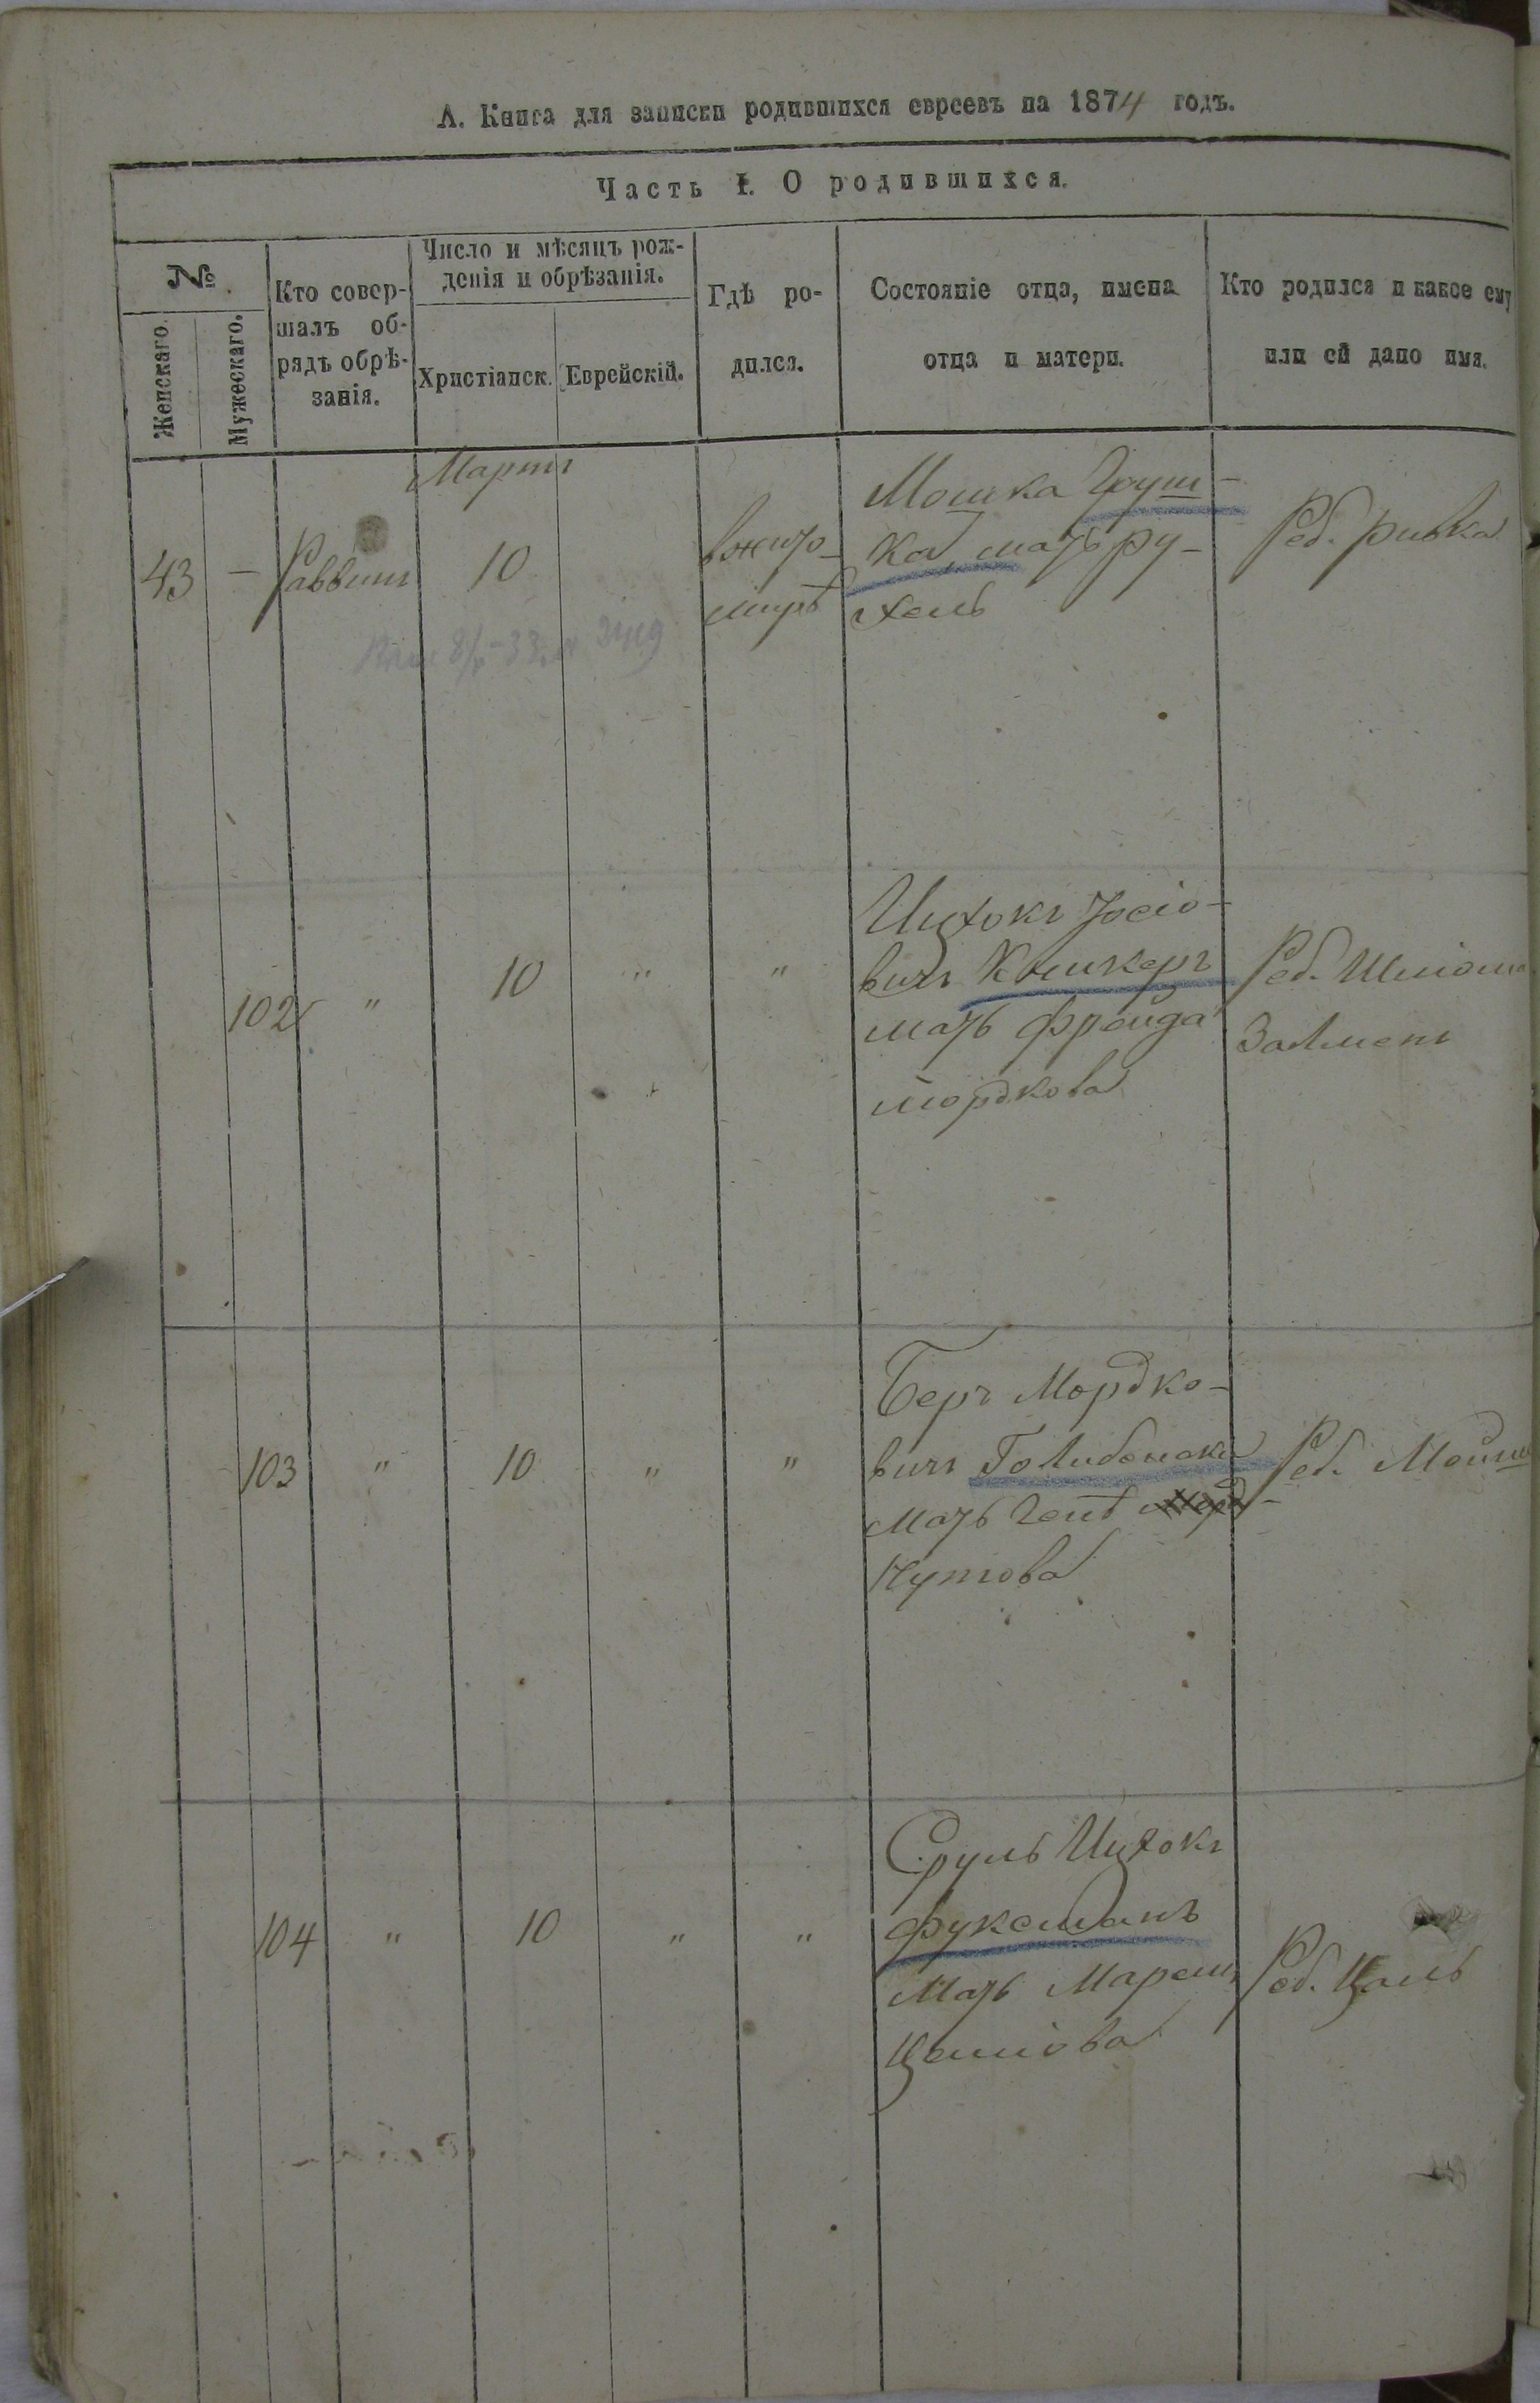 А. Книга для записки родившихся евреевъ на 1874 годъ.
Часть I. О родившихся.
№
Женскаго.
Мужескаго.
Кто совер-
шалъ об-
рядъ обрѣ-
занія.
Число и мѣсяцъ рож-
денія и обрѣзанія.
Христіанск.
Еврейскій.
Гдѣ ро-
дился.
Состояніе отца, имена
отца и матери.
Кто родился и какое ему
или ей дано имя.
Мартъ
43
–
Раввинъ
10
вжито-
мирѣ
Мошка Груш-
ка, мать Ру-
хель
Реб. Ривка
102
"
10
"
"
Ицхокъ Иосіо-
вичъ
мать Фрейда
Мордкова
Реб. Шліома
Залменъ
103
"
10
"
"
Беръ Мордко-
вичъ
мать Гені
Нутова
Реб.
104
"
10
"
"
Сруль Ицхокъ
Фуксманъ
Мать
Реб.